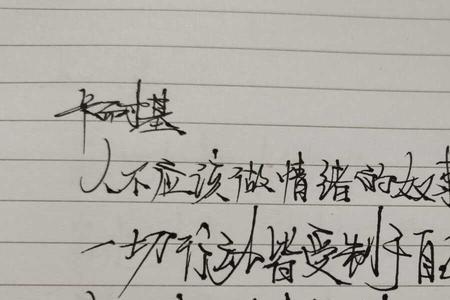 卡耐基
人不应该做情绪的奴
一切行动皆受制于自